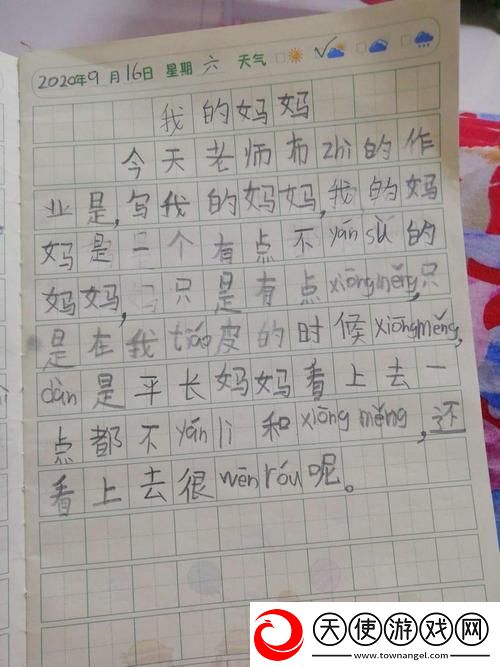 2020年9月16日 星期六 天气
我的妈妈
今天老师布zhi的作
业是,写我的妈妈,我的妈
妈是一个有点不yán sù的
妈妈,只是有点xiōngměng,只
是在我tiáo皮的时候xiōngměng,
dàn是平长妈妈看上去一
点都不yán lì和xiōng měng,还
看上去很wēn róu呢。
天使游戏网
www.townangel.com